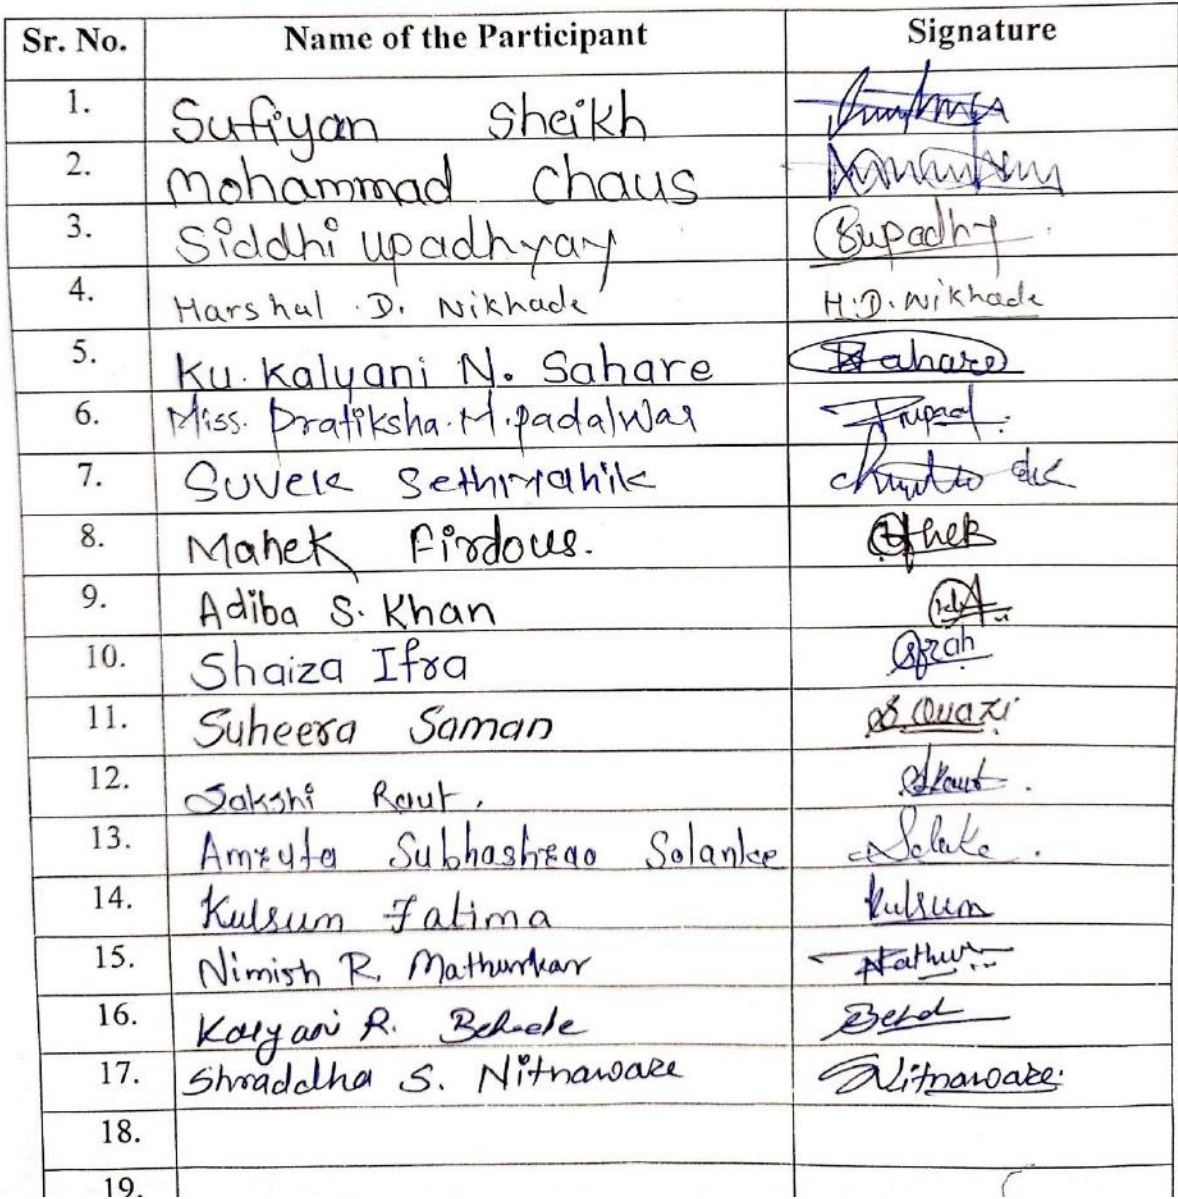 Sr. No. Name of the Participant Signature
1. Sufiyan Sheikh
2. Mohammad Chaus
3. Siddhi upadhyay Supadhy
4. Harshal . D. Nikhade H.D. Nikhade
5. Ku. Kalyani N. Sahare Sahare
6. Miss. Pratiksha. M. padalwar
7. Suvek
8. Mahek Firdous.
9. Adiba S. Khan
10. Shaiza Ifra
11. Suheera Saman S Quazi
12. Sakshi Raut. SRaut.
13. Amruta Subhashrao Solanke
14. Kulsum Fatima Kulsum
15. Nimish R. Mathurkar
16. Kalyani R.
17. Shraddha S. Nitnaware Nitnaware.
18.
19.